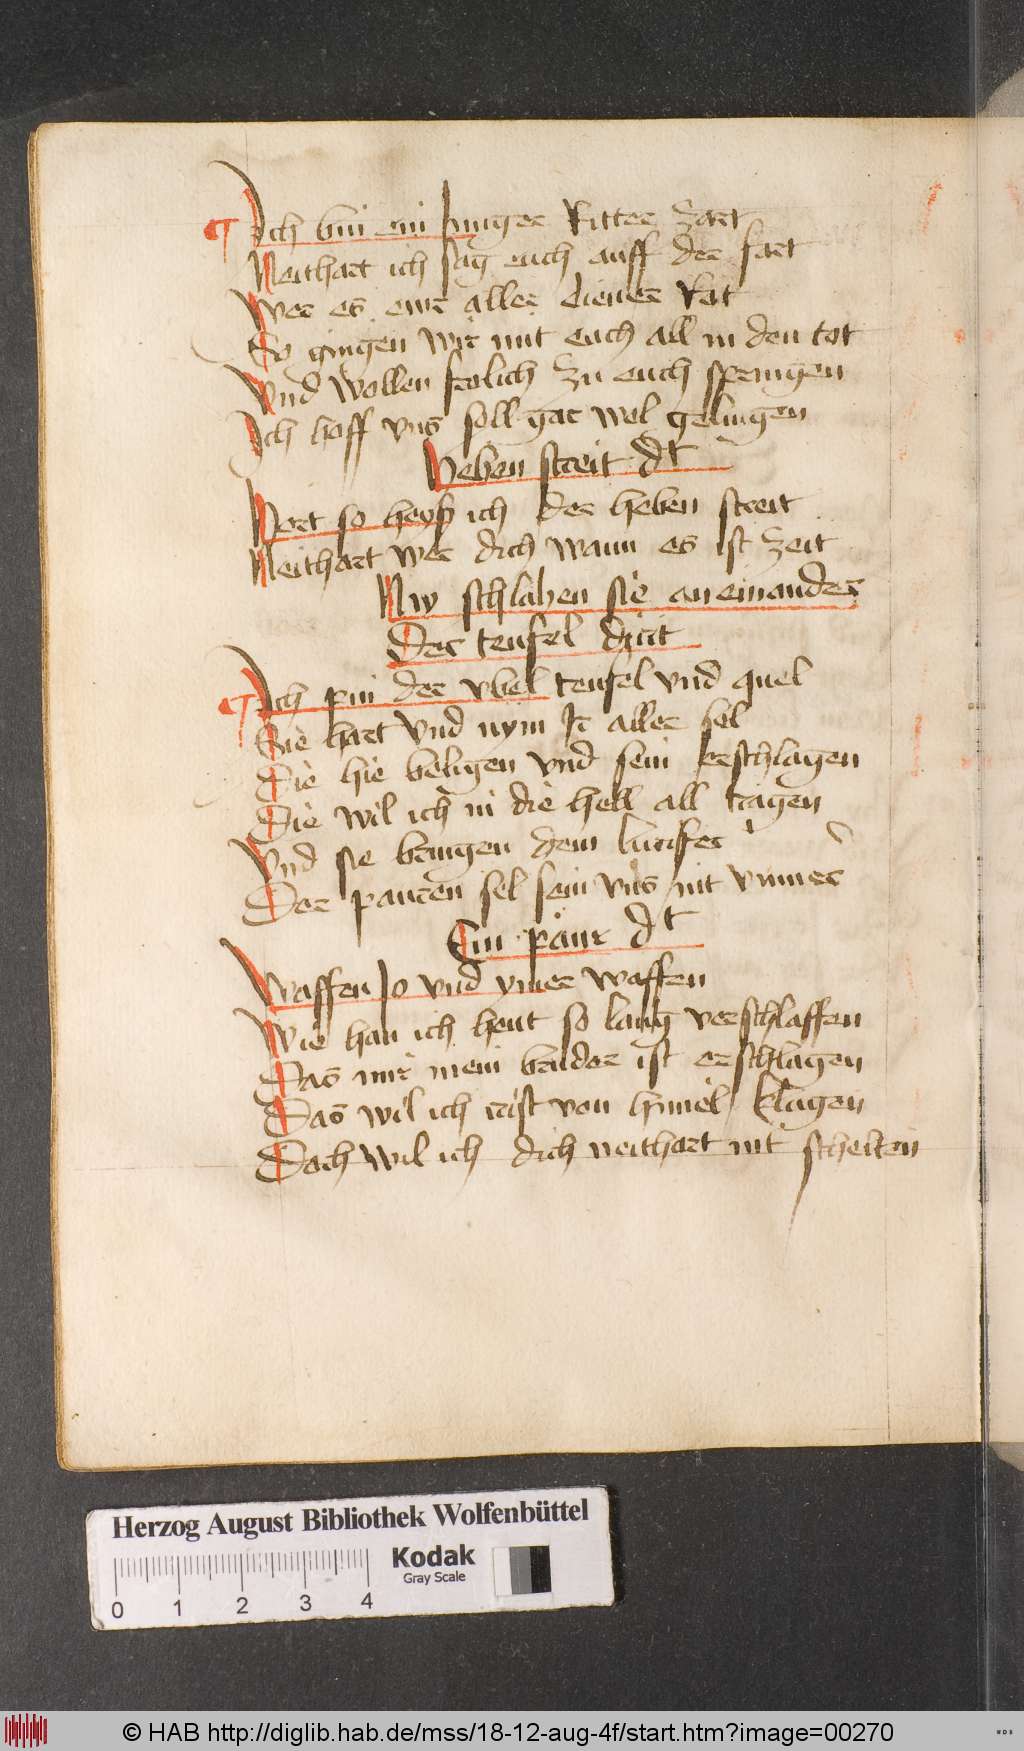 Ich bin ein Junger Ritter Zart
Neithart ich sag euch auff der fart
Wer es ewr aller diener Rot
So gingen wir mit euch all in den tot
Vnd wollen frolich zu euch springen
Ich hoff vns soll gar wol gelingen
Heben streit dt
Hort so heyß ich der heben streit
Neithart wer dich wann es ist Zeit
Nw schlahen sie an einander
Der teufel dicit
Ich pin der vbel teufel vnd quel
Sie hart vnd nym Ir aller sel
Die hie beligen vnd sein erschlagen
Die wil ich in die hell all tragen
Vnd sie bringen dem lucifer
Der pauren sel sein vns nit vnmer
Ein paur dt
Waffen Jo vnd ymer waffen
Wie han ich heut so lang verschlaffen
Das mir mein bruder ist erschlagen
Das wil ich crist von himel klagen
Doch wil ich dich neithart nit schelten
Herzog August Bibliothek Wolfenbüttel
Kodak
Gray Scale
0 1 2 3 4
© HAB http://diglib.hab.de/mss/18-12-aug-4f/start.htm?image=00270